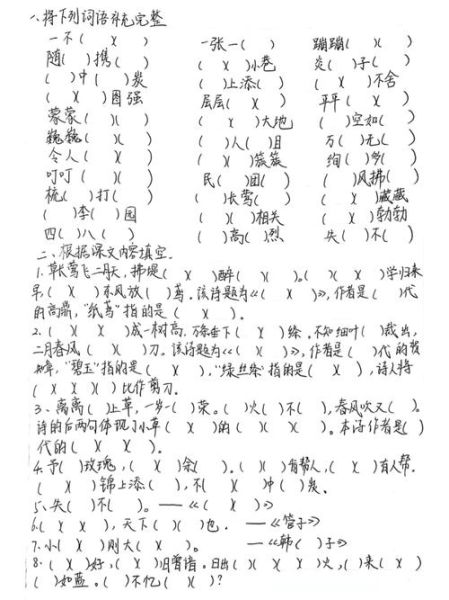 一、将下列词语补充完整
一不（ ）（ ） 一张一（ ） 蹦蹦（ ）（ ）
随（ ）携（ ） （ ）（ ）小巷 炎（ ）子（ ）
（ ）中（ ）炭 （ ）上添（ ） （ ）（ ）不舍
（ ）（ ）图强 层层（ ）（ ） 平平（ ）（ ）
蒙蒙（ ）（ ） （ ）（ ）大地 （ ）空如（ ）
巍巍（ ）（ ） （ ）人（ ）目 万（ ）无（ ）
令人（ ）（ ） （ ）（ ）簇簇 绚（ ）多（ ）
叮叮（ ）（ ） 民（ ）团（ ） （ ）风拂（ ）
梳（ ）打（ ） （ ）长莺（ ） （ ）（ ）藏藏
（ ）李（ ）园 （ ）（ ）相关 （ ）（ ）勃勃
四（ ）八（ ） （ ）高（ ）烈 失（ ）不（ ）
二、根据课文内容填空.
1.草长莺飞二月天，拂堤（ ）（ ）醉（ ）（ ）。（ ）（ ）学归来
早，（ ）（ ）东风放（ ）鸢。该诗题为《（ ）（ ）》，作者是（ ）代
的高鼎，“纸鸢”指的是（ ）（ ）.
2.（ ）（ ）（ ）成一树高，万条垂下（ ）（ ）绦.不知细叶（ ）裁出，
二月春风（ ）（ ）刀.该诗题为《（ ）（ ）》，作者是（ ）代的贺
知章，“碧玉”指的是（ ）（ ），“绿丝绦”指的是（ ）（ ），诗人将
（ ）（ ）（ ）（ ）比作剪刀.
3、离离（ ）上草，一岁一（ ）荣。（ ）火（ ）不（ ），春风吹又（ ）。
诗的后两句体现了小草（ ）（ ）的（ ）（ ）（ ）。本诗作者是（ ）
代的（ ）（ ）（ ）。
4.予（ ）玫瑰，（ ）（ ）余（ ）。（ ）（ ）有帮人，（ ）（ ）有人帮.
（ ）（ ）锦上添（ ），不（ ）（ ）（ ）冲（ ）炭.
5、失（ ）不（ ）。—《（ ）（ ）》
6.（ ）（ ）（ ），天下（ ）（ ）也.—《管子》
7.小（ ）（ ）则大（ ）（ ）。—《韩（ ）子》
8.（ ）（ ）好，（ ）（ ）旧曾谙.日出（ ）（ ）（ ）（ ）火，（ ）来（ ）（ ）
（ ）如蓝。（ ）不忆（ ）（ ）？